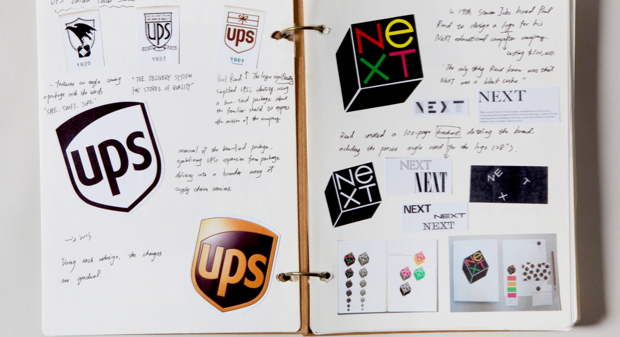 ups
1920
1937
1961
- Features an eagle carrying
a package with the words
"SAFE, SWIFT, SURE"
"THE DELIVERY SYSTEM
FOR STORES OF QUALITY"
Paul Rand's The logo significantly
simplified UPS's identity, using
a bow-tied package above
the familiar shield to express
the mission of the company.
ups
removal of the bow-tied package,
symbolizing UPS's expansion from package
delivery into a broader array of
supply chain services.
→ 2003
Using each redesign, the changes
are gradual.
ups
NeXT
In 1986, Steve Jobs hired Paul
Rand to design a logo for his
NeXT educational computer company,
costing $100,000.
"The only thing Rand knew was that
NeXT was a black cube."
NEXT
NEXT
Rand created a 100-page brochure detailing the brand
including the precise angle used for the logo (28°).
NeXT
NEXT
NEXT
NEXT
NEXT
NEXT
NEXT
NeXT